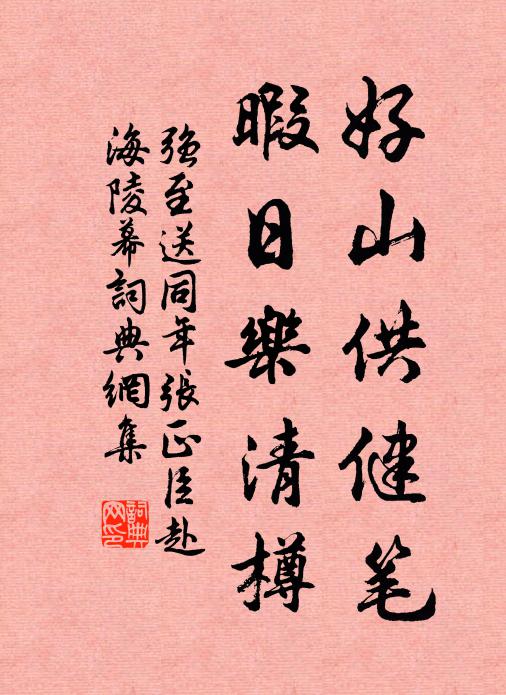 好山供健笔
暇日樂清樽
强至送同年張正臣赴
海陵幕詞典網集
詞典
网印